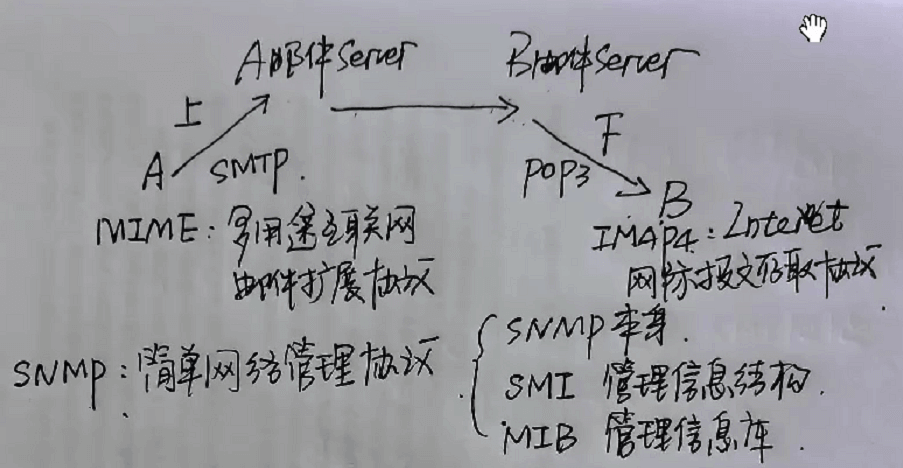 A邮件Server
B邮件Server
上
下
A
SMTP.
POP3
B
MIME: 多用途互联网
邮件扩展协议
IMAP4: Internet
网际报文存取协议
SNMP: 简单网络管理协议
SNMP本身.
SMI 管理信息结构.
MIB 管理信息库.